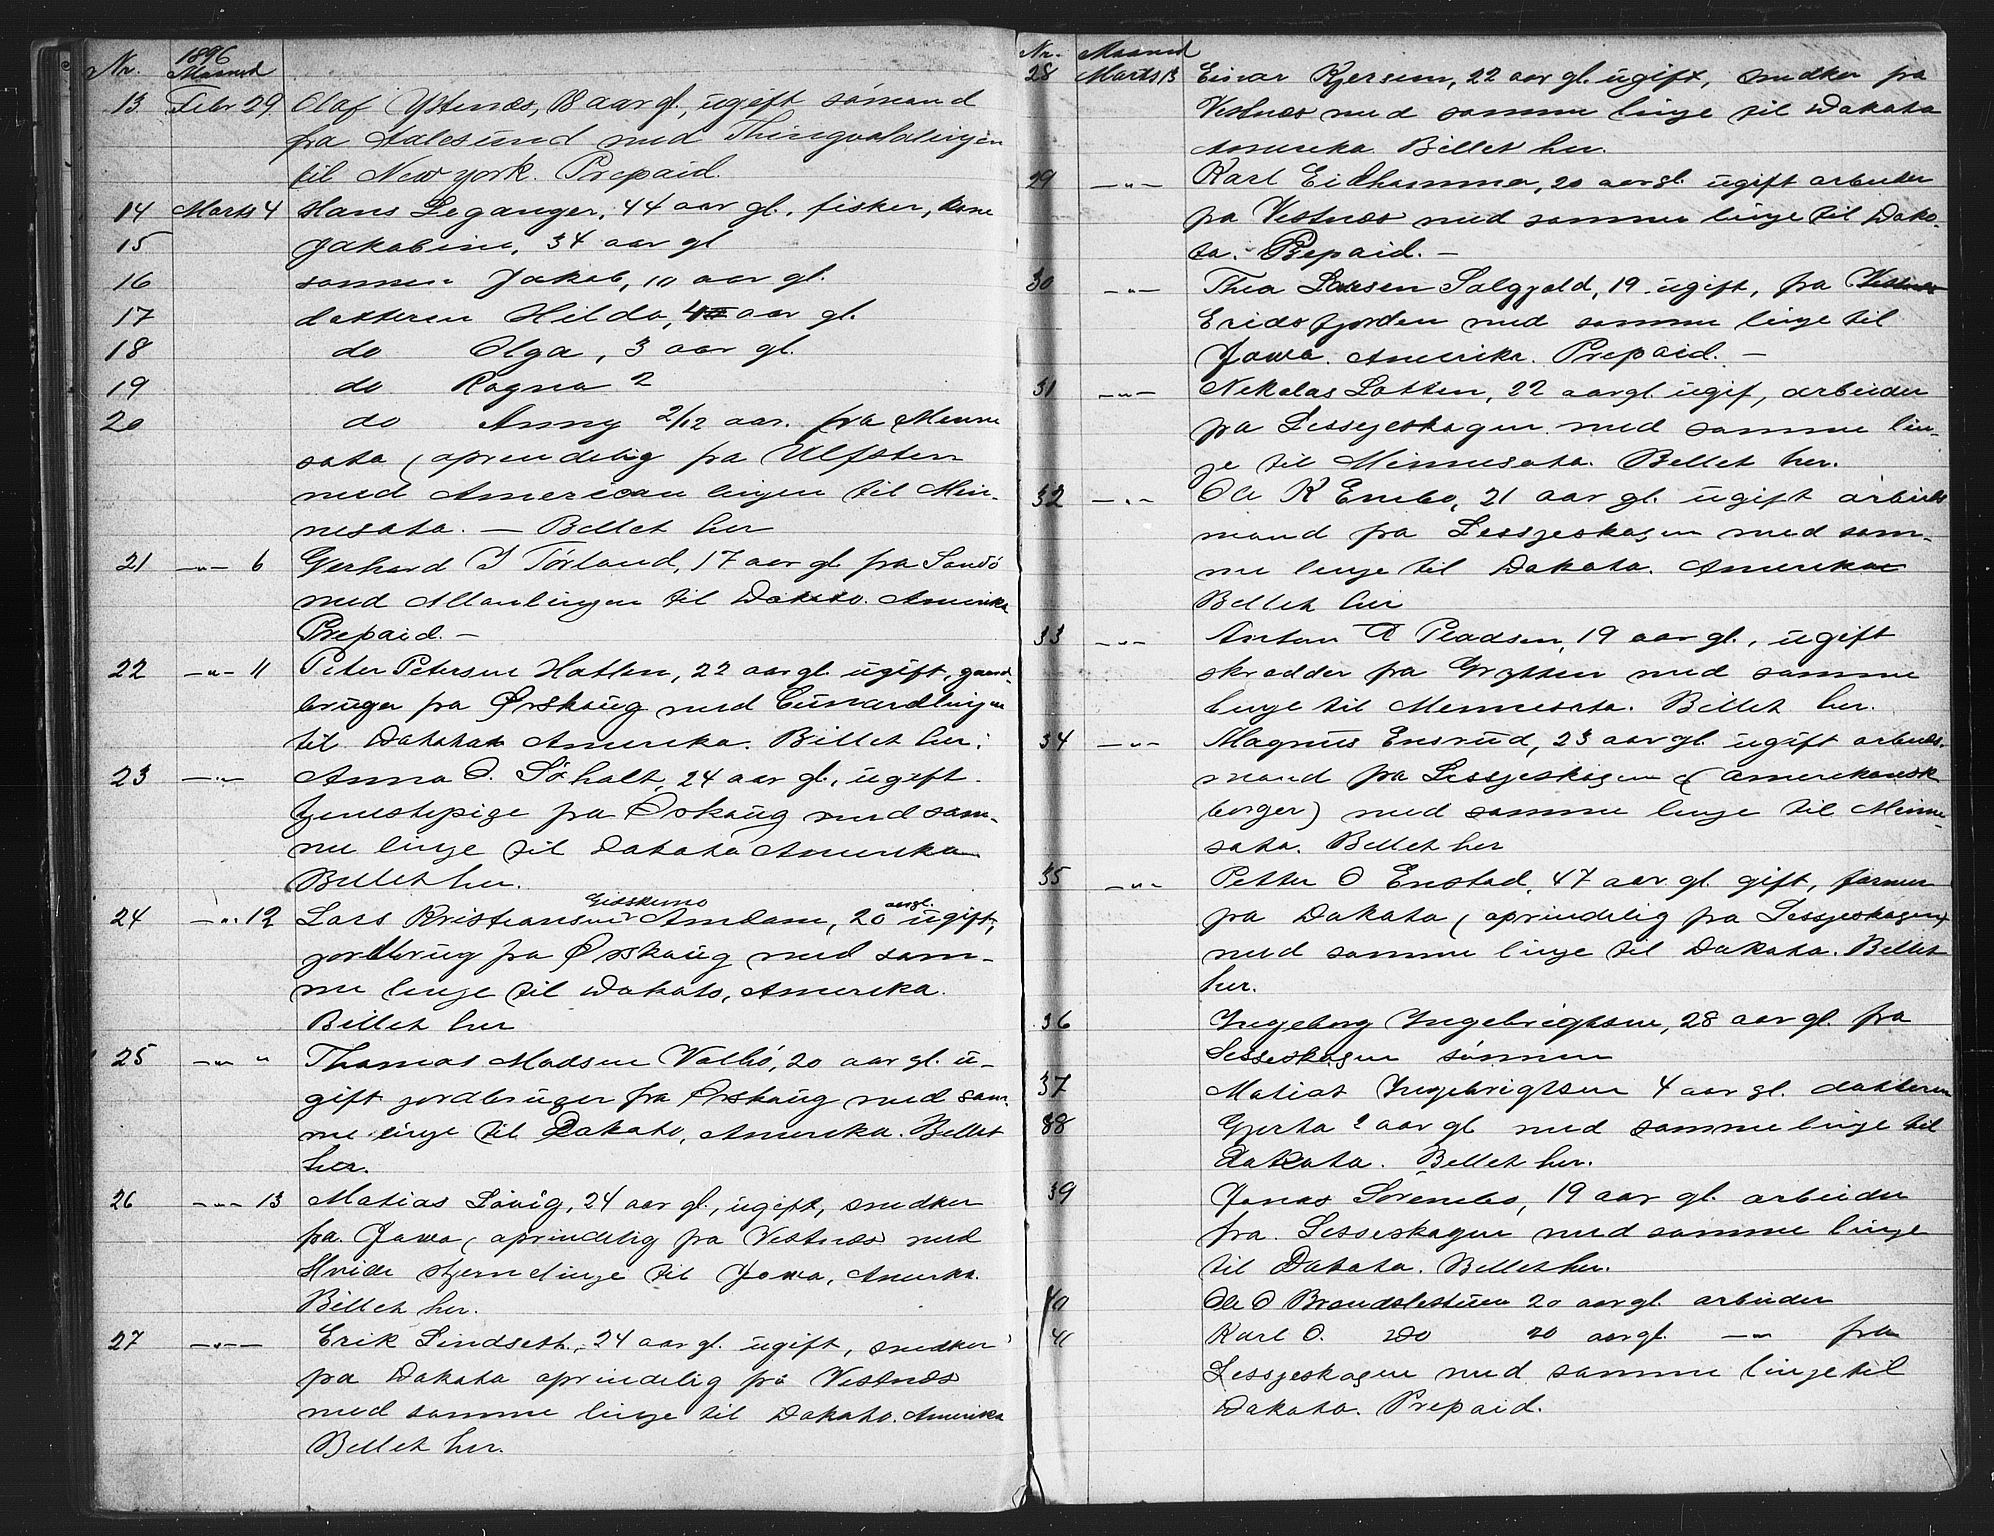 Nr. 1896 Maaned
13 Febr 29. Olaf Ystenæs, 18 aar gl, ugift sömand
fra Aalesund med Thingvallalinjen
til New york. Prepaid.
14 Marts 4 Hans Leganger, 44 aar gl., fisker, kone
15 Jakobine, 34 aar gl
16 sønnen Jakob, 10 aar gl.
17 datteren Hilda, 4 aar gl.
18 do Olga, 3 aar gl.
19 do Ragna 2
20 do Anny 2/12 aar. fra Minne
sota (oprindelig fra Ulfsten
med American linjen til Min-
nesota. — Billet her
21 —"— 6 Gerhard I Törland, 17 aar gl. fra Sandö
med Allanlinjen til Dakota. Amerika
Prepaid. —
22 —"— 11 Peter Petersen Hatten, 22 aar gl. ugift, gaard-
bruger fra Ørskoug med Cunardlinjen
til Dakota Amerika. Billet her.
23 —"— Anna O. Søholt, 24 aar gl., ugift.
tjenestepige fra Ørskoug med sam-
me linje til Dakota Amerika
Billet her.
24 —"— 12 Lars Kristiansen Gisskemo Amdam, 20 aar gl. ugift,
jordbrug fra Ørskoug med sam-
me linje til Dakota, Amerika.
Billet her
25 —"— " Thomas Madsen Valbö, 20 aar gl. u-
gift jordbruger fra Ørskoug med sam-
me linje til Dakota, Amerika. Billet
her.
26 —"— 13 Matias Lövig, 24 aar gl., ugift, snedker
fra Jowa, oprindelig fra Vestnæs med
Hvide stjernelinje til Jowa, Amerka.
Billet her.
27 —"— Erik Lindseth, 24 aar gl. ugift, snedker
fra Dakota oprindelig fra Vestnæs
med samme linje til Dakota. Amerika
Billet her.
Nr. Maaned
28 Marts 13 Einar Kjersem, 22 aar gl. ugift, snedker fra
Vestnæs med samme linje til Dakota
Amerika Billet her.
29 —"— Karl Eidhammer, 20 aar gl. ugift arbeider
fra Vestnæs med samme linje til Dako-
ta. Prepaid. —
30 —"— Thea Larsen Salgjeld, 19 ugift, fra Vestnæs
Eridsfjorden med samme linje til
Jowa. Amerika. Prepaid. —
31 —"— Nekolas Lotten, 22 aar gl. ugif, arbeider
fra Lessjeskogen med samme lin-
je til Minnesota. Billet her.
32 —"— Ole K Enebo, 21 aar gl. ugift arbeids
mand fra Lessjeskogen med sam-
me linje til Dakota. Amerika
Billet her
33 —"— Anton P Pladsen, 19 aar gl., ugift
skrædder fra Grytten med samme
linje til Mennesota. Billet her.
34 —"— Magnus Ensrud, 23 aar gl. ugift arbeids-
mand fra Lessjeskogen (amerikansk
borger) med samme linje til Minne-
sota. Billet her
35 —"— Petter O Enstad, 47 aar gl. gift, farmer
fra Dakota (oprindelig fra Lessjeskogen)
med samme linje til Dakota. Billet
her.
36 Ingeborg Ingebrigtsen, 28 aar gl. fra
Lesseskogen sönnen
37 Matias Ingebrigtsen 4 aar gl. datteren
38 Gjerta 2 aar gl med samme linje til
Dakota. Billet her.
39 Jonas Sörenebo, 19 aar gl. arbeider
fra. Lesseskogen med samme linje
til Dakota. Billet her.
40 Ole O Brandslestuen 20 aar gl. arbeider
41 Karl O. Do 20 aar gl. —"— fra
Lessjeskogen med samme linje til
Dakota. Prepaid.